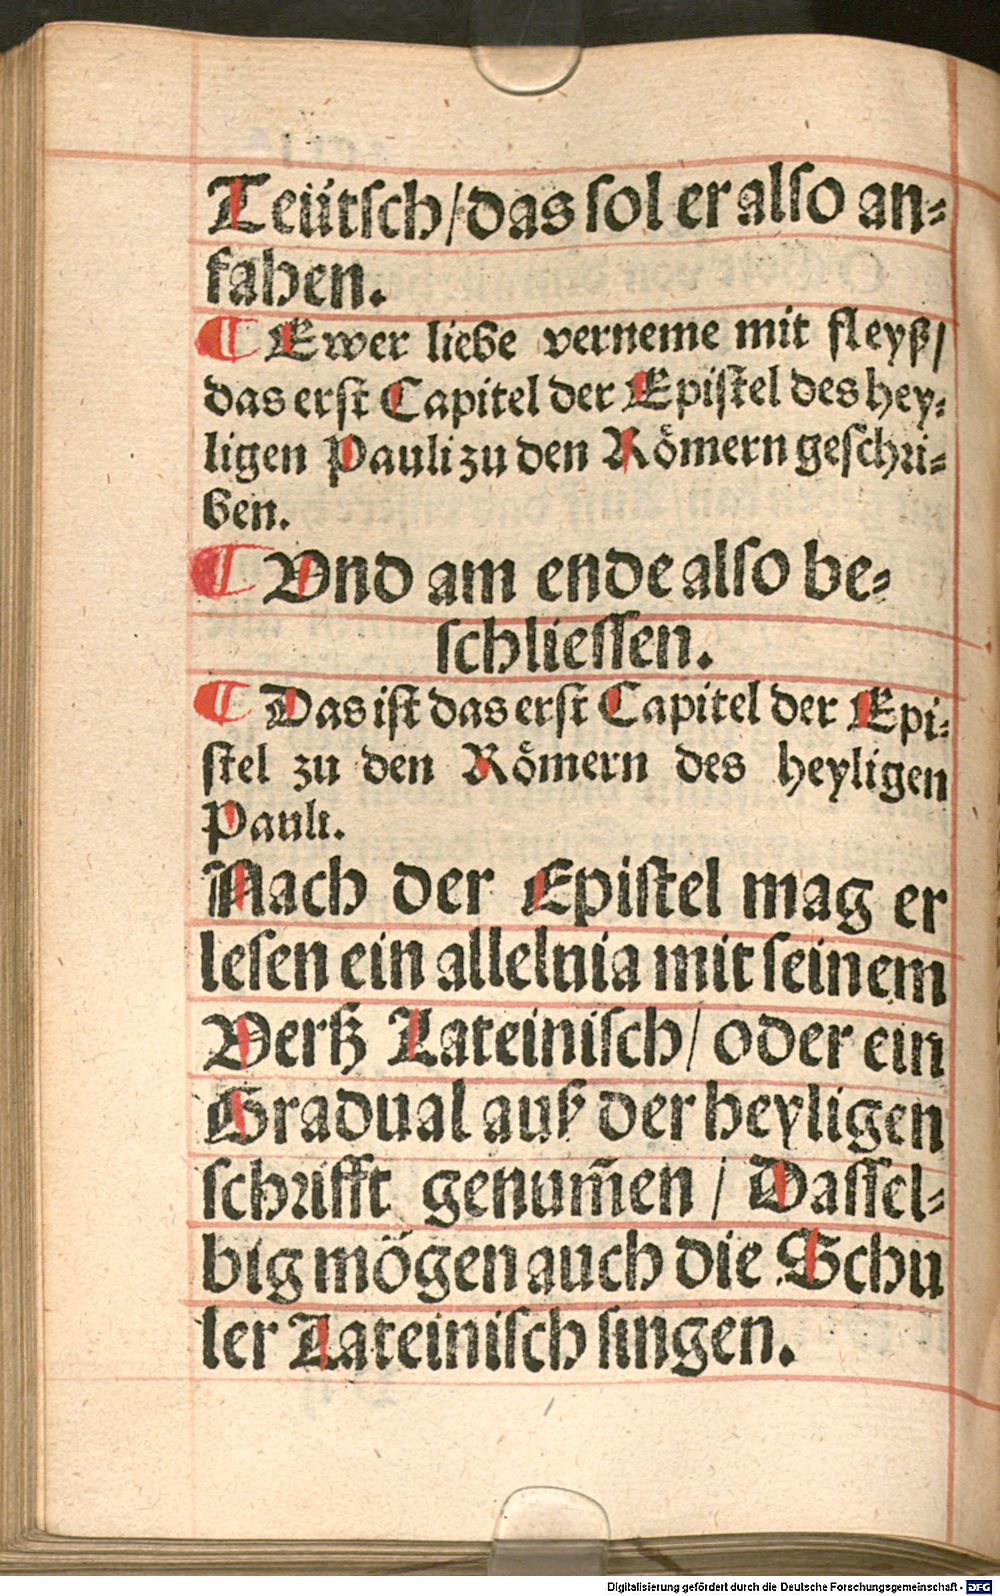 Teütsch/das sol er also an⸗
fahen.
¶ Ewer liebe verneme mit fleyß/
das erst Capitel der Epistel des hey⸗
ligen Pauli zu den Römern geschri⸗
ben.
¶ Vnd am ende also be⸗
schliessen.
¶ Das ist das erst Capitel der Epi⸗
stel zu den Römern des heyligen
Pauli.
Nach der Epistel mag er
lesen ein allelnia mit seinem
Verß Lateinisch/ oder ein
Gradual auß der heyligen
schrifft genum̄en / Dassel⸗
big mögen auch die Schu
ler Lateinisch singen.
Digitalisierung gefördert durch die Deutsche Forschungsgemeinschaft - DFG